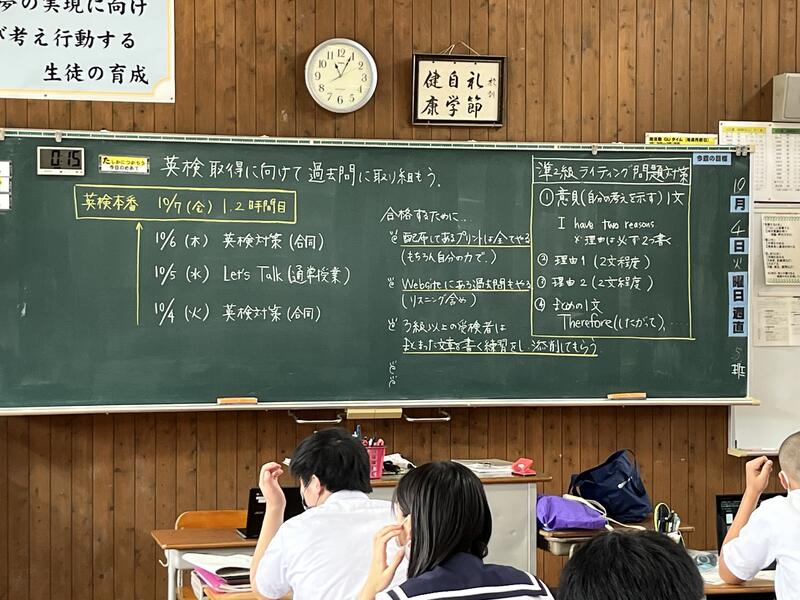 夢の実現に向け
考え行動する
生徒の育成
校訓
礼節
自学
健康
0:15
たしかにつかもう
今日のめあて
英検取得に向けて過去問に取り組もう。
英検本番 10/7(金) 1.2時間目
10/6 (木) 英検対策 (合同)
10/5 (水) Let's Talk (通常授業)
10/4 (火) 英検対策 (合同)
合格するために…
配布してあるプリントは全てやる
(もちろん自分の力で。)
Websiteにある過去問もやる
(リスニング含め)
3級以上の受検者は
まとまった文章を書く練習をし、添削してもらう。
準2級 ライティング問題対策
① 意見(自分の考えを示す) 1文
I have two reasons
※理由は必ず2つ書く
② 理由1 (2文程度)
③ 理由2 (2文程度)
④ まとめの1文
Therefore (したがって),…
今週の目標
10
月
4
日
火
曜日
週直
5
班